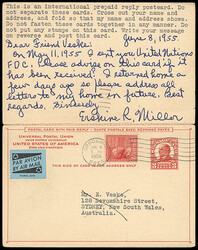 This is an international prepaid reply postcard. Do
not separate these cards. Please cut out my name and
address, and fold so that my name and address shows.
Do not fasten these cards together in any manner. Do
not put any stamps on this card. Write your message
on reverse and post this card.
June 8, 1955.
Dear Friend Veske:
On May 11, 1955 I sent you United Nations
F.D.C. Please advise on this card if
it has been received. I returned home
a few days ago so please address all
letters to my home in future. Best
regards, Sincerely
Erskine R. Miller
POSTAL CARD WITH PAID REPLY
CARTE POSTALE AVEC RÉPONSE PAYÉE
Universal Postal Union
UNION POSTALE UNIVERSELLE
UNITED STATES OF AMERICA
ETATS-UNIS D'AMERIQUE
THIS SIDE OF CARD IS FOR ADDRESS
PAR AVION
BY AIR MAIL
Mr. E. Veske,
128 Devonshire Street,
SYDNEY, New South Wales,
Australia.